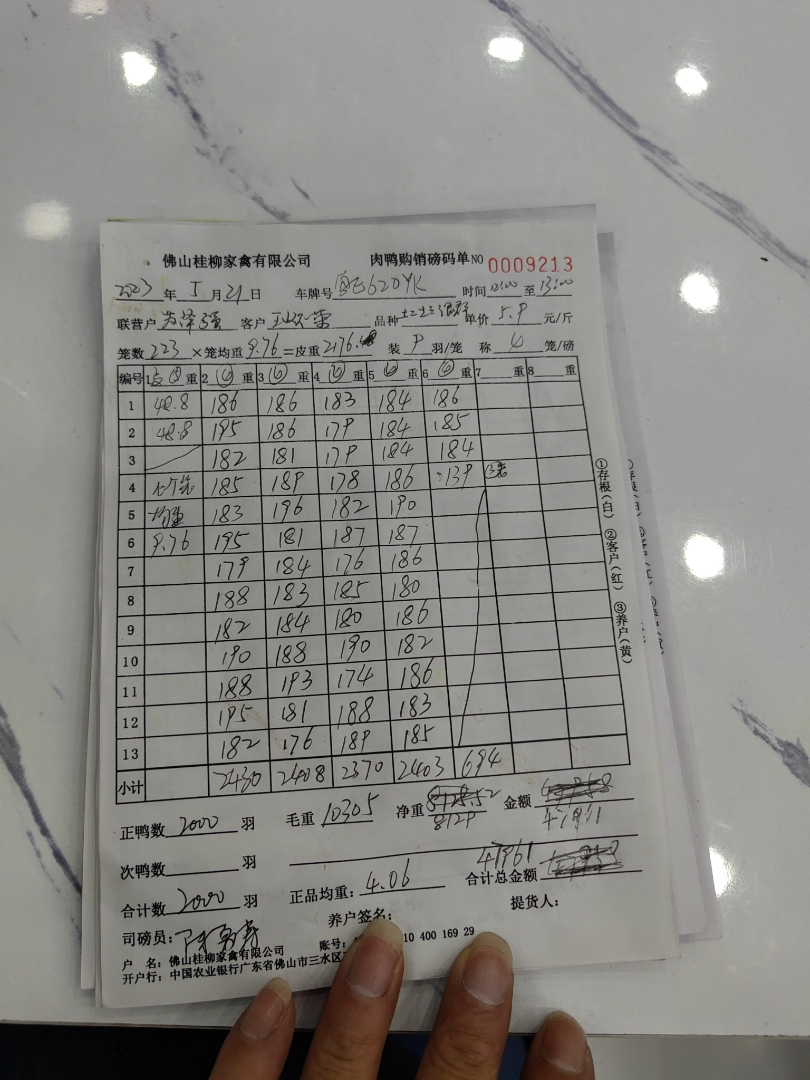 佛山桂柳家禽有限公司 肉鸭购销磅码单 NO 0009213
2023 年 5 月 21 日 车牌号 620YK 时间 12:00 至 13:00
联营户 客户 品种 单价 5.9 元/斤
笼数 223 ×笼均重 9.76 =皮重 2176.48 装 9 羽/笼 称 4 笼/磅
编号 1 重 2 重 3 重 4 重 5 重 6 重 7 重 8 重
1 48.8 186 186 183 184 186
2 48.8 195 186 179 184 185
3 182 181 179 184 184
4 185 189 178 186 139
5 均重 183 196 182 190
6 9.76 195 181 187 187
7 179 184 176 186
8 188 183 185 180
9 182 184 180 186
10 190 188 190 182
11 188 193 174 186
12 195 181 188 183
13 182 176 189 185
小计 2430 2408 2370 2403 694
正鸭数 2000 羽 毛重 10305 净重 8129 金额 47961
次鸭数 羽
合计数 2000 羽 正品均重: 4.06 合计总金额 47961
司磅员: 养户签名: 提货人:
户 名: 佛山桂柳家禽有限公司 账号: 10 400 169 29
开户行: 中国农业银行广东省佛山市三水区
①存根(白) ②客户(红) ③养户(黄)